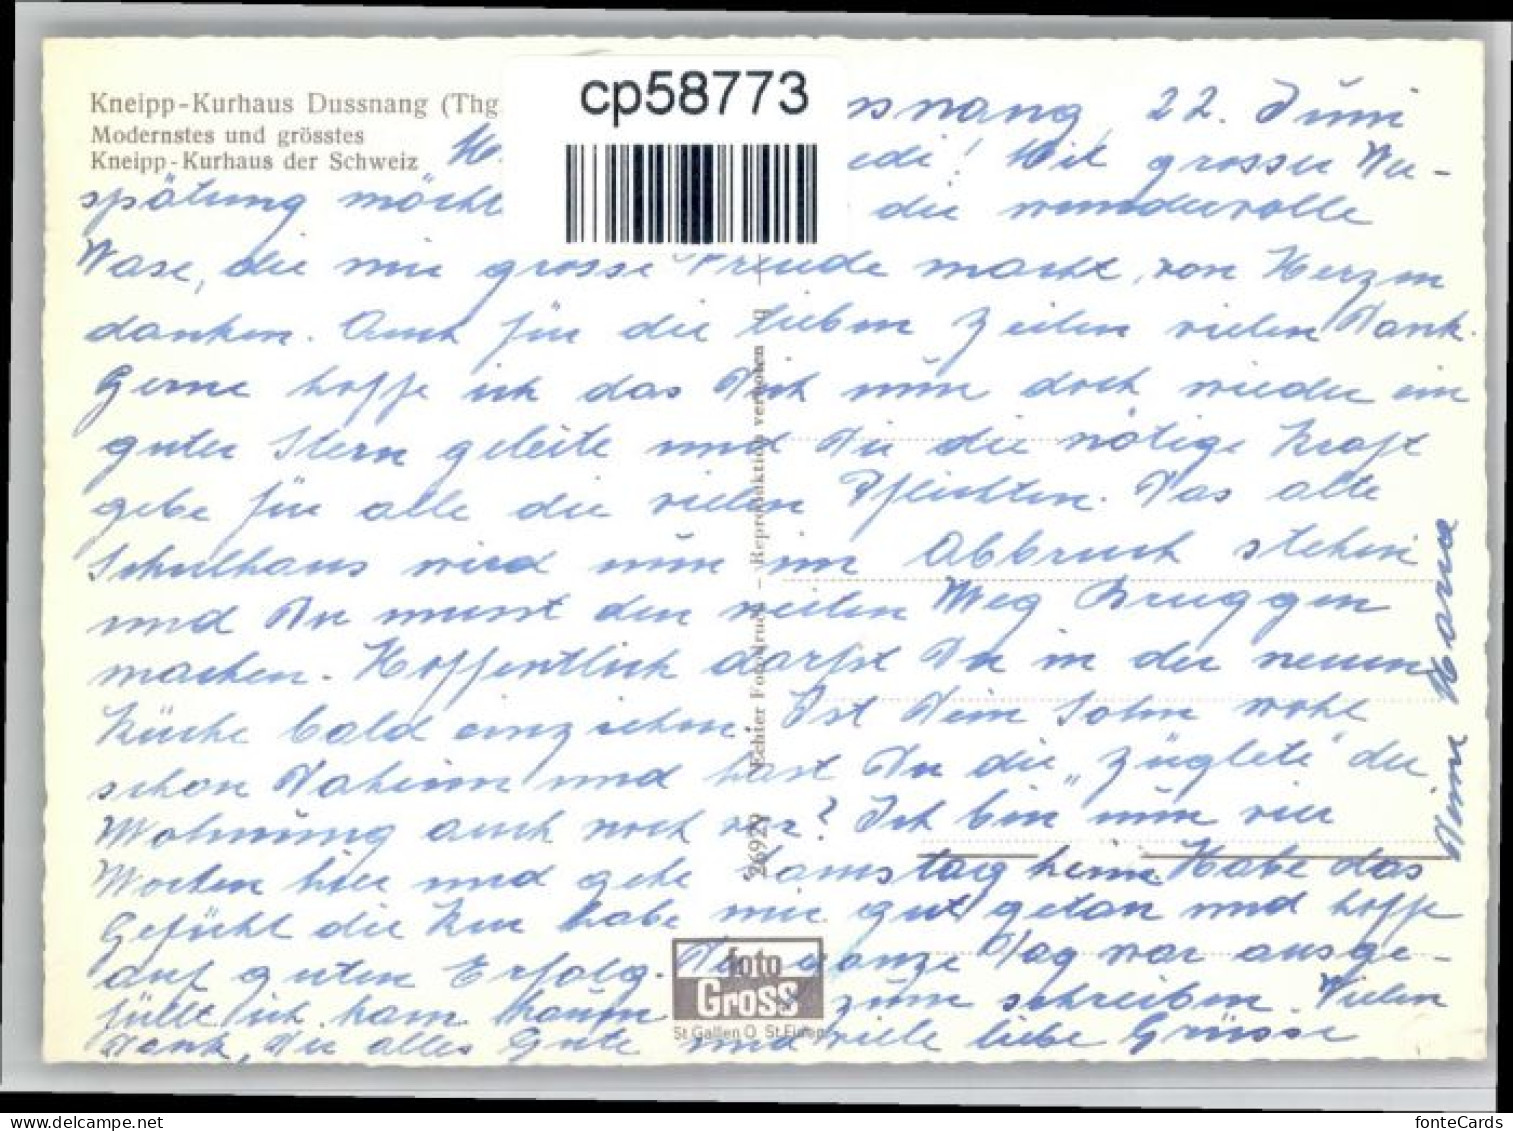 cp58773
Kneipp-Kurhaus Dussnang (Thg
Modernstes und grösstes
Kneipp-Kurhaus der Schweiz
ssnang, 22. Juni
edi! Mit grosser Ver-
spätung möcht die wundervolle
Vase, die mir grosse Freude macht, von Herzen
danken. Auch für die lieben Zeilen vielen Dank.
Gerne hoffe ich das Dich nun doch wieder ein
guter Stern geleite und Dir die nötige Kraft
gebe für alle die vielen Pflichten. Das alte
Schulhaus wird nun im Abbruch stehen
und Du musst den weiten Weg Bruggen
machen. Hoffentlich darfst Du in der neuen
Küche bald einziehen. Ist Dein Sohn wohl
schon Daheim und hast Du die „Züglete" der
Wohnung auch noch vor? Ich bin nun vier
Wochen hier und gehe Samstag heim. Habe das
Gefühl die Kur habe mir gut getan und hoffe
auf guten Erfolg. Der ganze Tag war ausge-
füllt, ich kam kaum zum schreiben. Vielen
Dank, Dir alles Gute und viele liebe Grüsse
26929 Echter Fotodruck – Reproduktion verboten
foto
Gross
St Gallen O St Fiden
fonteCards